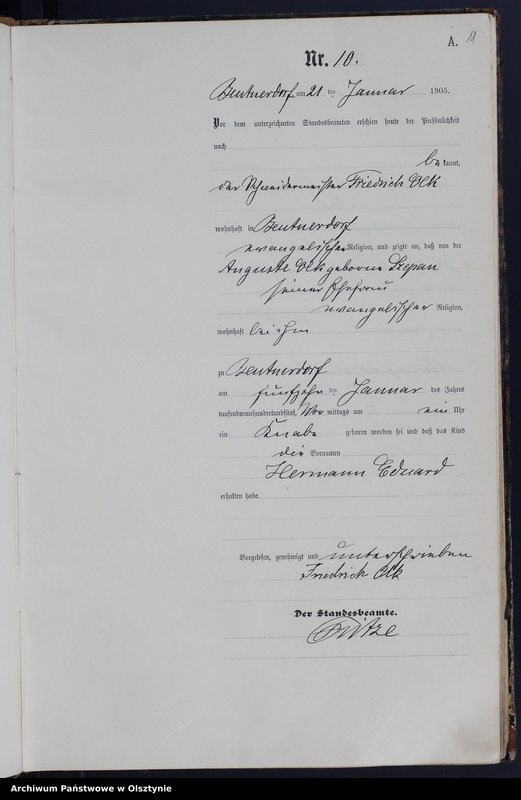 A. 11
Nr. 10.
Beutnerdorf am 21 ten Januar 1905.
Vor dem unterzeichneten Standesbeamten erschien heute der Persönlichkeit
nach
be kannt,
der Schneidermeister Friedrich Olk
wohnhaft in Beutnerdorf
evangelischer Religion, und zeigte an, daß von der
Auguste Olk geborne Szepan
seiner Ehefrau
evangelischer Religion,
wohnhaft bei ihm
zu Beutnerdorf
am fünfzehn ten Januar des Jahres
tausendneunhundertundfünf, Vor mittags um ein Uhr
ein Knabe geboren worden sei und daß das Kind
die Vornamen
Hermann Eduard
erhalten habe.
Vorgelesen, genehmigt und unterschrieben
Friedrich Olk
Der Standesbeamte.
Archiwum Państwowe w Olsztynie